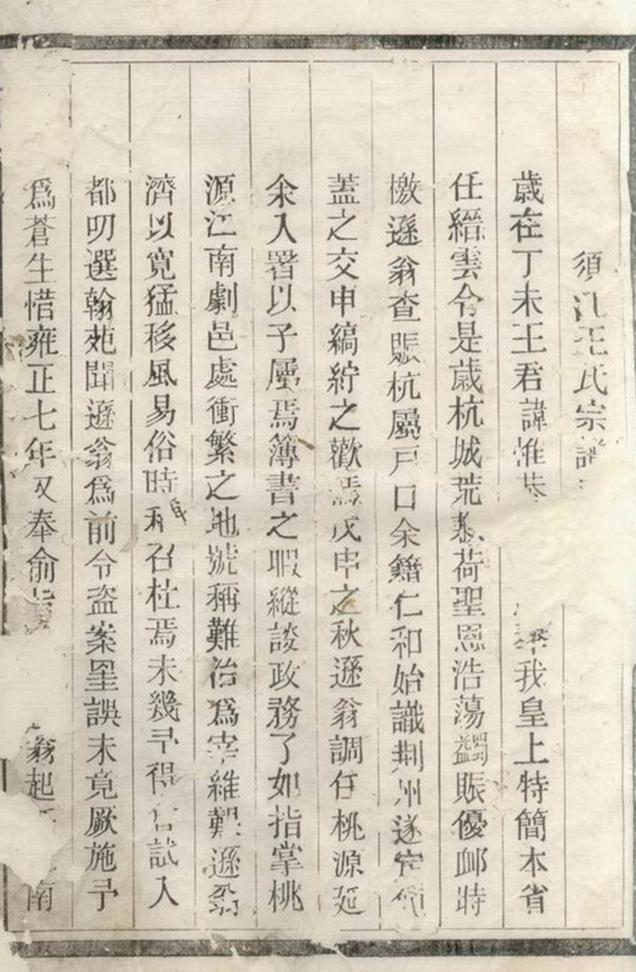 須江王氏宗譜
歲在丁未王君諱惟恭我皇上特簡本省
任縉雲令是歲杭城荒歉荷聖恩浩蕩蠲賑優䘏時
檄遜翁查賑杭屬戸口余籍仁和始識荆州遂定傾
葢之交申縞紵之歡焉戊申之秋遜翁調任桃源延
余入署以子屬焉簿書之暇縱談政務了如指掌桃
源江南劇邑處衝繁之地號稱難治爲宰維艱遜翁
濟以寛猛移風易俗時和召杜焉未幾予得官試入
都叨選翰苑聞遜翁爲前令盗案罣誤未竟厥施予
爲蒼生惜雍正七年又奉俞旨翁起南